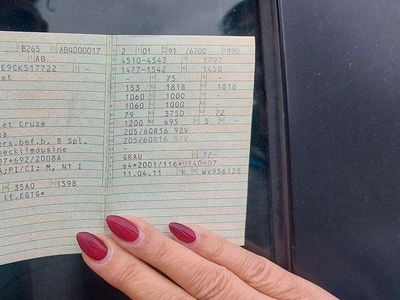 B265 ABQ000017 2 01 91 /6200 190
AB 4510-4543 1797
E9CK517722 1477-1542 1450
et - 75
153 1818 1818
1060 1000 -
1060 1000 -
79 3750 72
let Cruze 1200 695 5
na 205/60R16 92V
ers.bef.b. 8 Spl. 205/60R16 92V
hecklimousine
07*692/2008A GRAU 7/-
A;PI/CI; M, N1 I e4*2001/116*0140*07
35A0 1598 11.04.11 K WV956128
lt.EGTG*